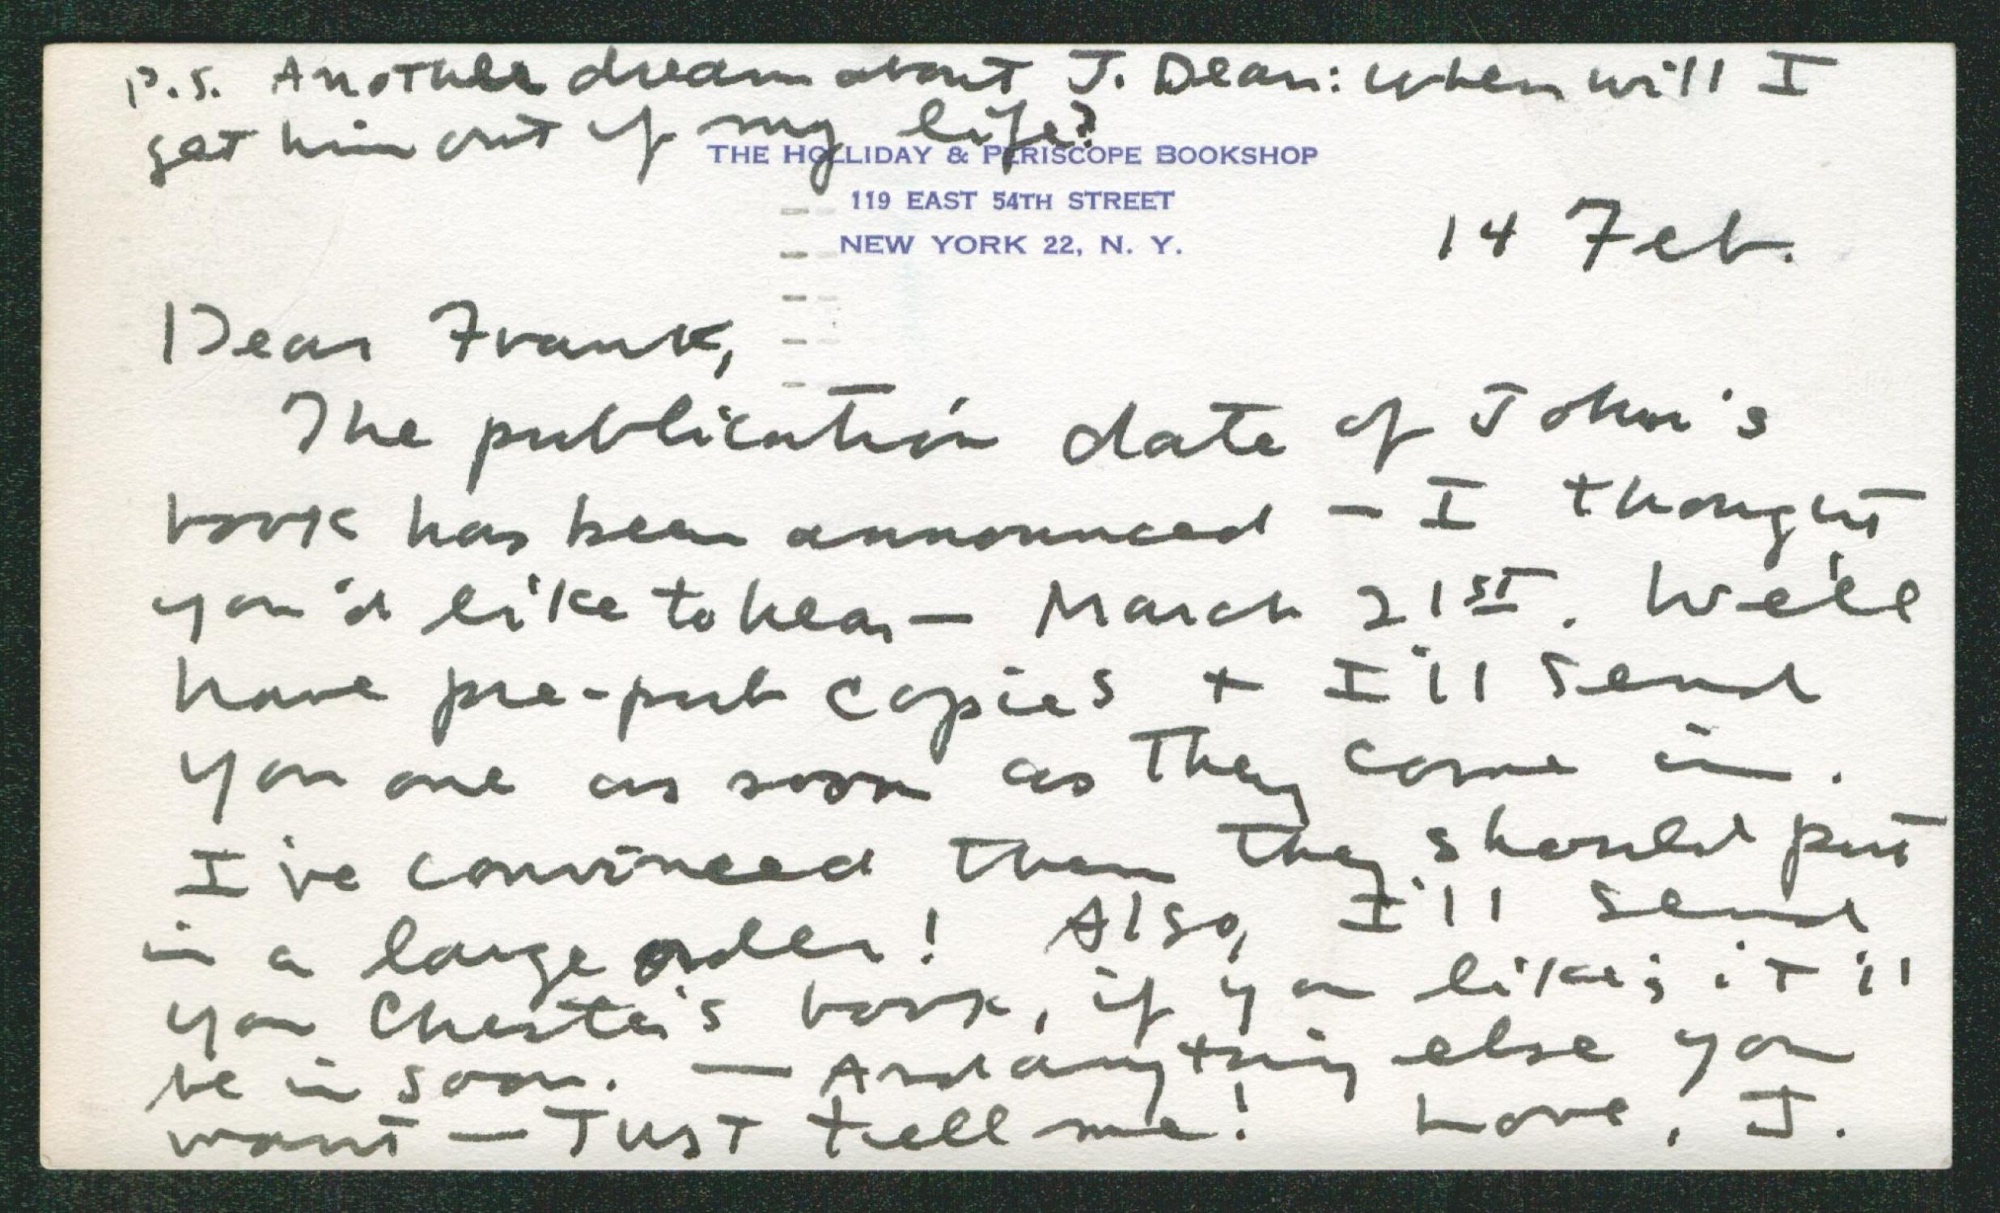 P.S. Another dream about J. Dean: when will I
get him out of my life?
THE HOLLIDAY & PERISCOPE BOOKSHOP
119 EAST 54TH STREET
NEW YORK 22, N. Y.
14 Feb.
Dear Frank,
The publication date of John's
book has been announced — I thought
you'd like to hear — March 21ST. We'll
have pre-pub copies + I'll send
you one as soon as they come in.
I've convinced them they should put
in a large order! Also, I'll send
you Chester's book, if you like; it'll
be in soon. — And anything else you
want — Just tell me! Love, J.